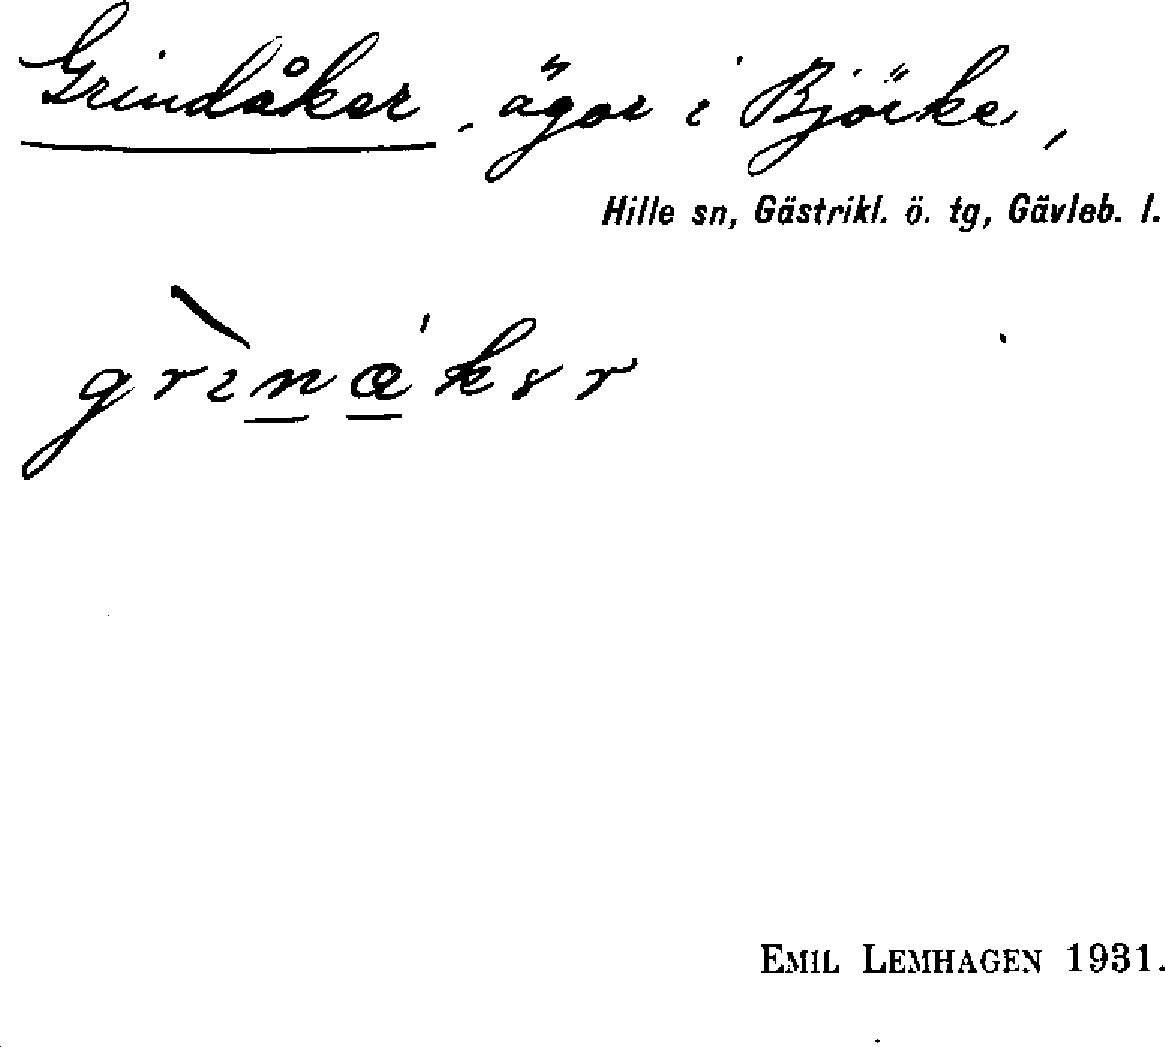 Grindåker, ägor i Björke,
Hille sn, Gästrikl. ö. tg, Gävleb. l.
grìnå̀kər
EMIL LEMHAGEN 1931.